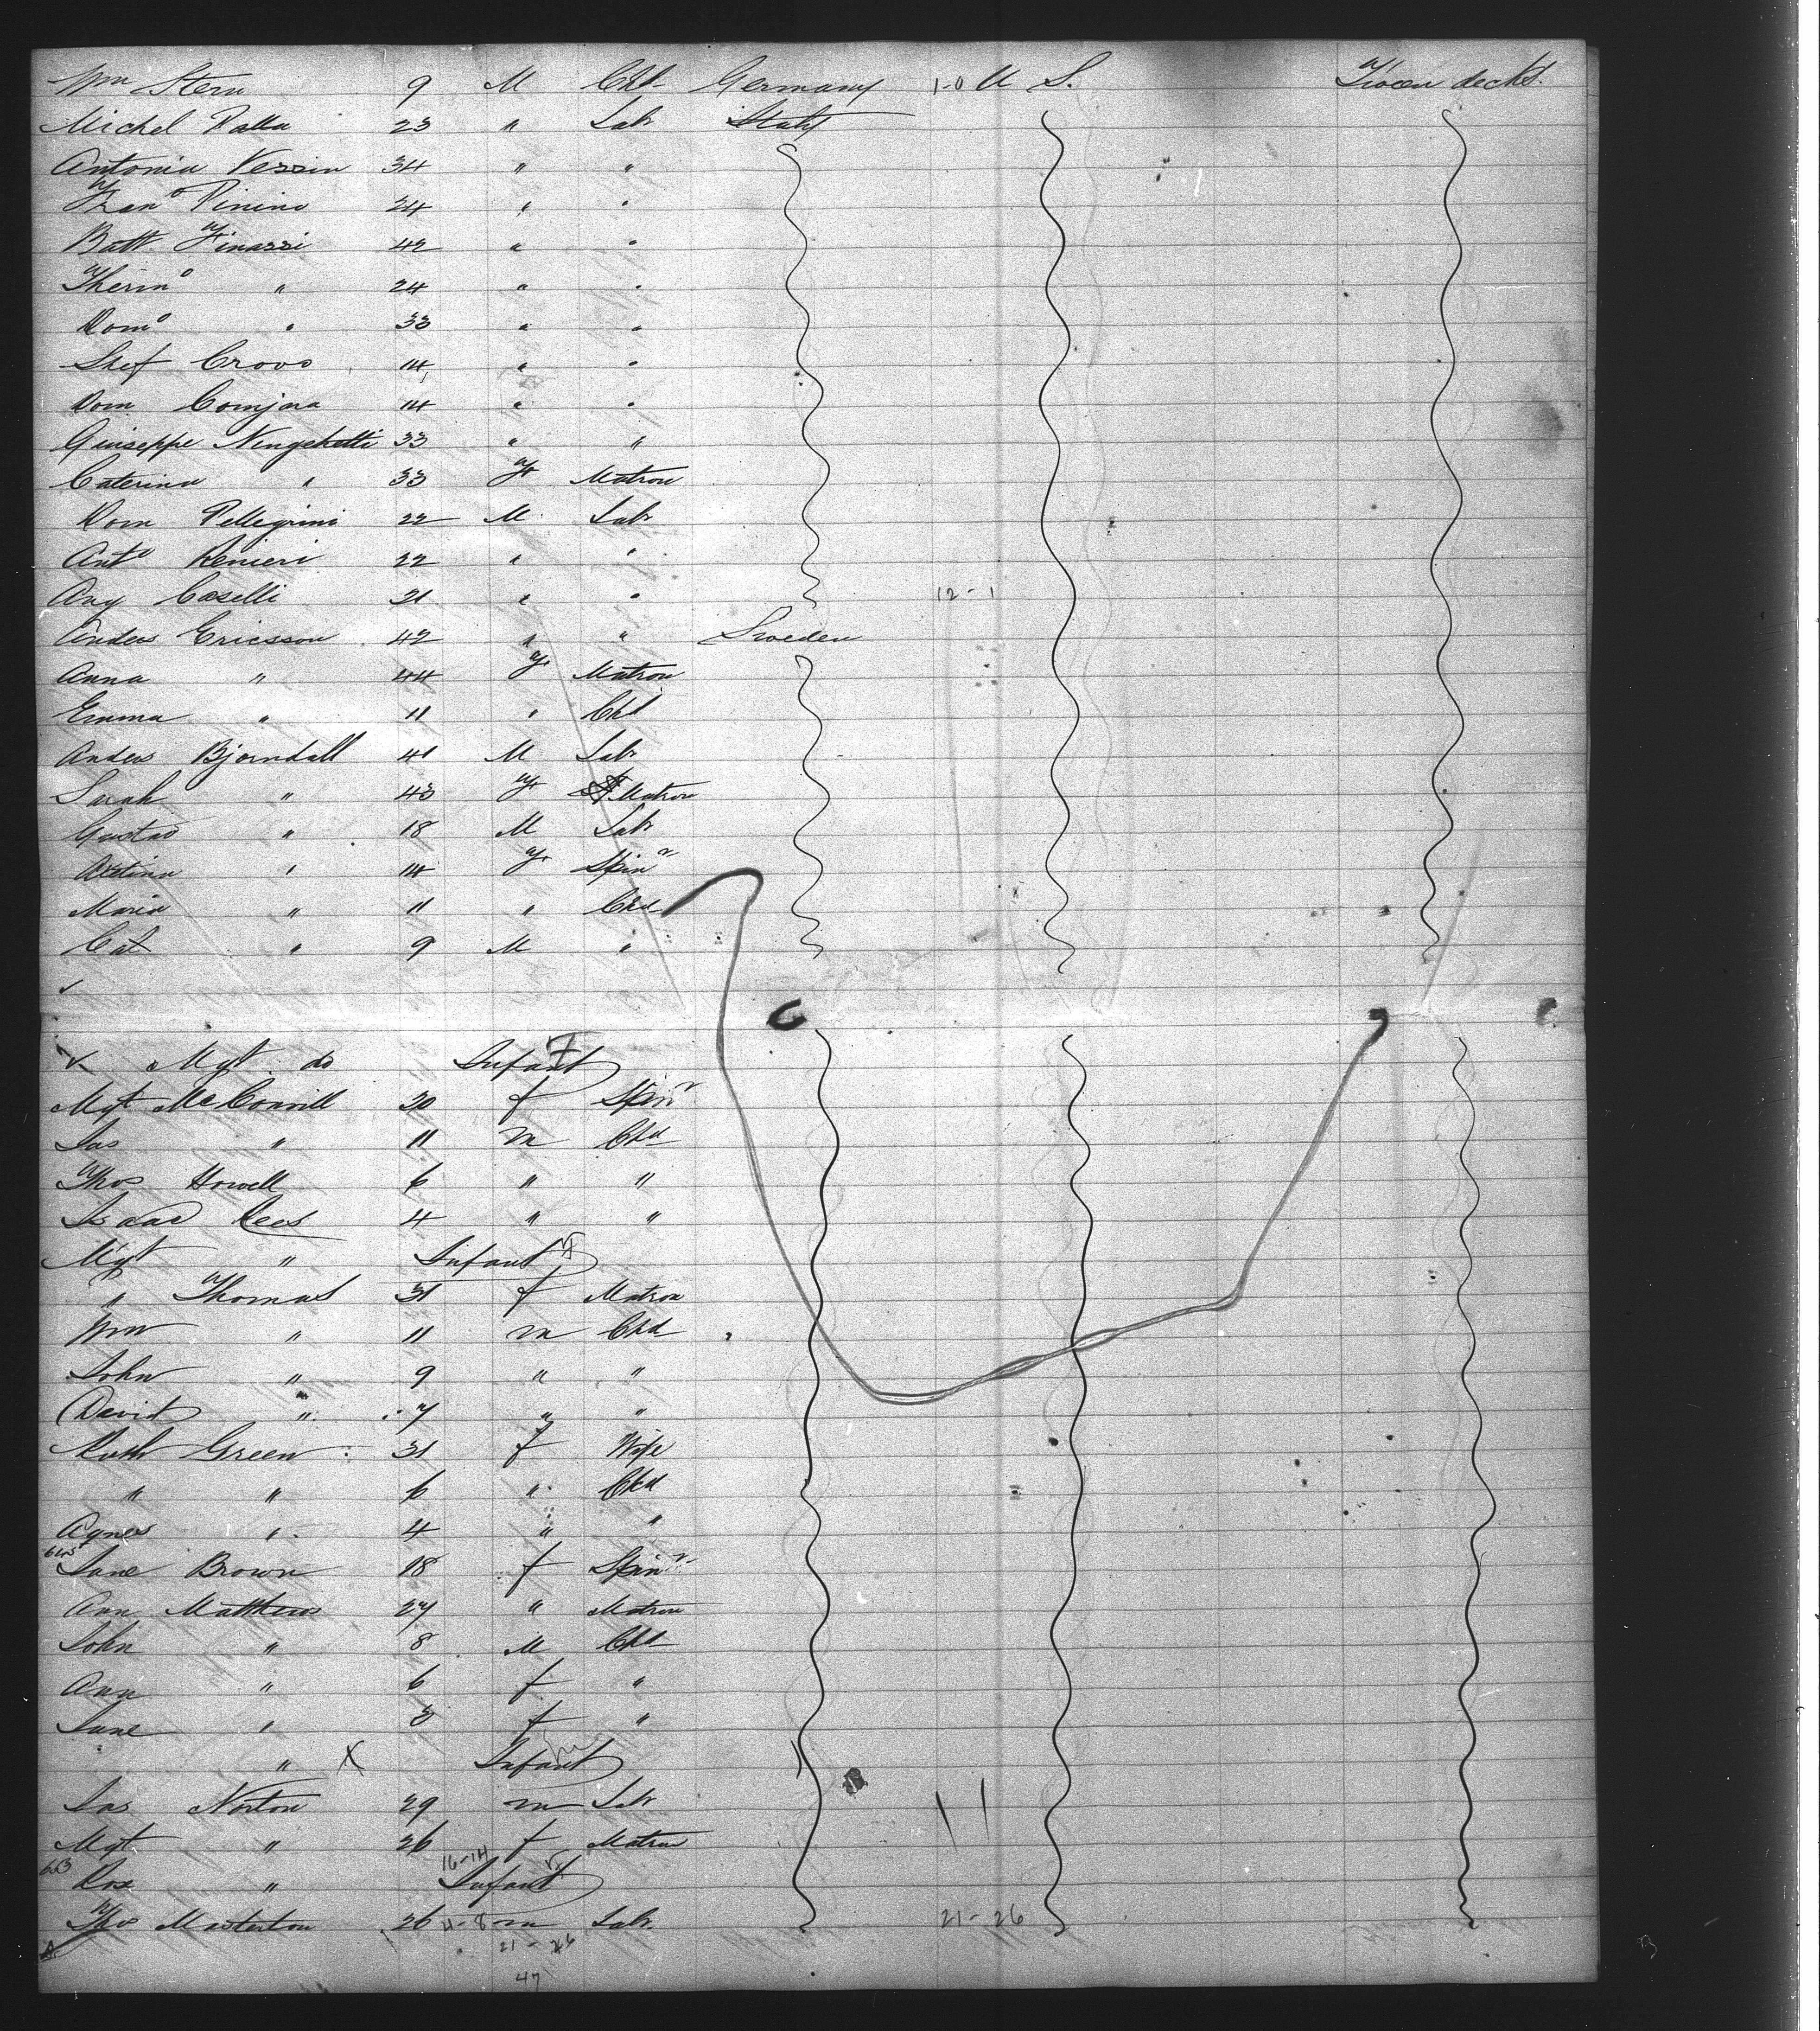 Wm Stern 9 M Chd Germany 1-0 U S. Tween decks.
Michel Dalla 23 " Labr Italy
Antonia Vezzin 34 " "
Fran° Pinino 24 " "
Batt Finassi 42 " "
" 24 " "
Dom° " 33 " "
Stef Crovo 14 " "
Dom 14 " "
Guiseppe 33 " "
Caterina " 33 F Matron
Dom Pellegrini 22 M Labr
Ant° Renieri 22 " "
Ang Caselli 21 " " 12-1
Anders Ericsson 42 " " Sweden
Anna " 44 F Matron
Emma " 11 " Chd
Anders Bjorndall 41 M Labr
Sarah " 43 F Matron
Gustav " 18 M Labr
" 14 F Spinr
Maria " 11 " Chd
" 9 M "
Mgt do Infant F
Mgt McConvill 30 f Spinr
Jas " 11 m Chd
Thos Howell 6 " "
Isaac Rees 4 " "
Mgt " Infant F
" Thomas 31 f Matron
Wm " 11 m Chd
John " 9 " "
David " 7 " "
Ruth Green 31 f Wife
" " 6 " Chd
Agnes " 4 " "
Jane Brown 18 f Spinr
Ann Matthews 27 " Matron
John " 8 M Chd
Ann " 6 f "
Jane " 3 f "
" X Infant
Jas Norton 29 m Labr
Mgt " 26 f Matron
Rose " 16-14 Infant
Thos Masterton 26 4-8 m Labr 21-26
21-26
47